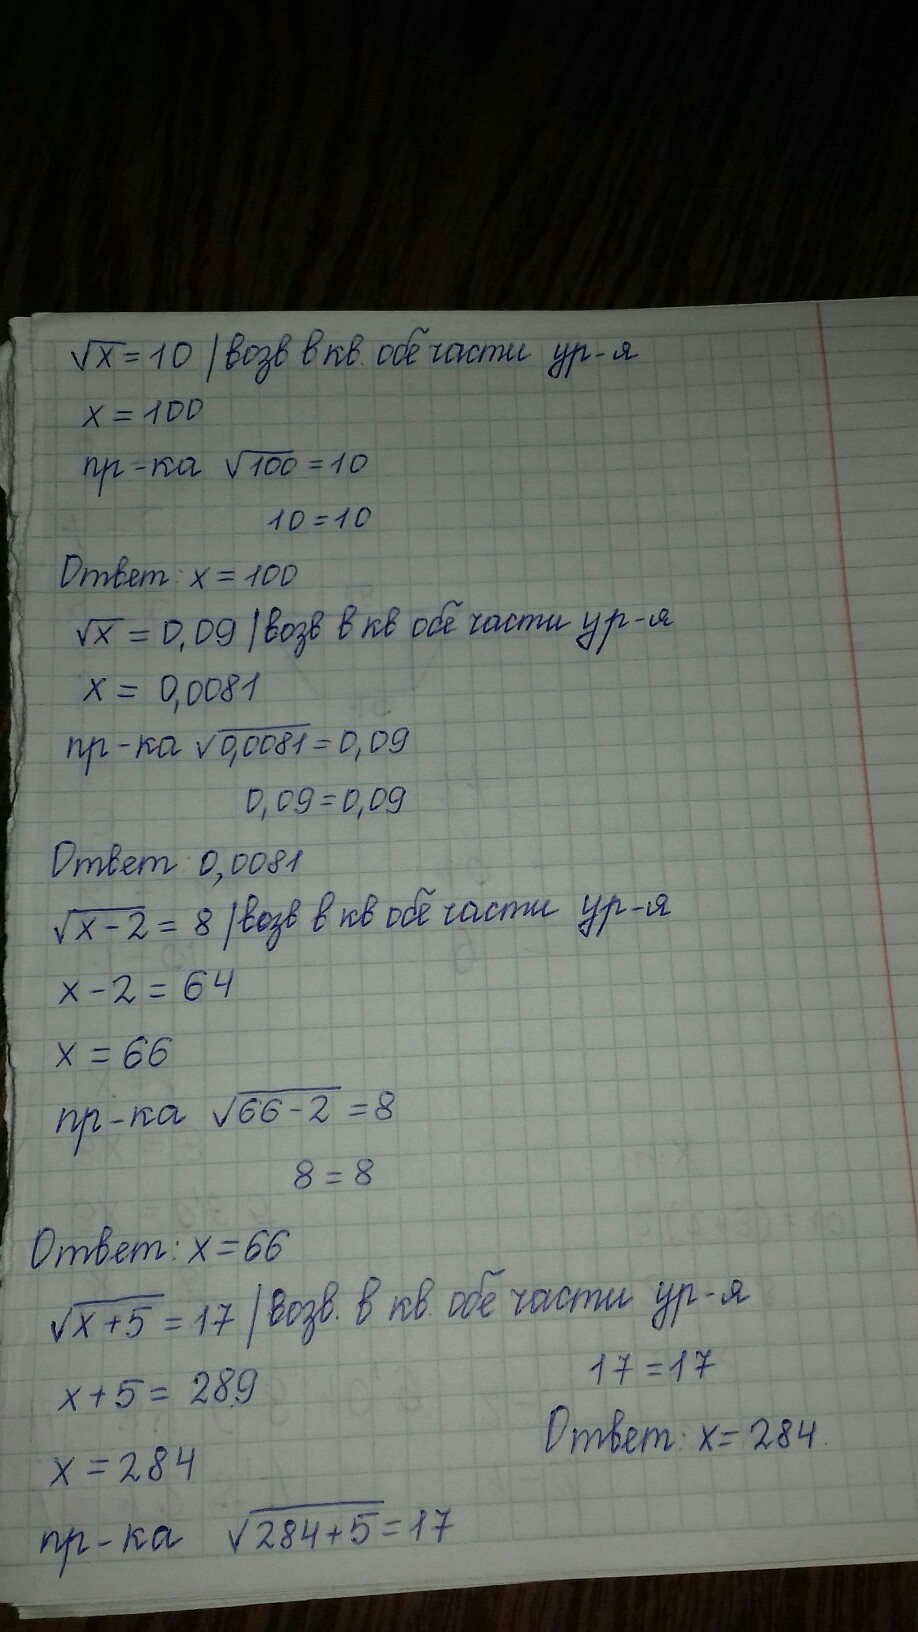 √x = 10 | возв в кв. обе части ур-я
x = 100
пр-ка √100 = 10
10 = 10
Ответ: x = 100
√x = 0,09 | возв в кв обе части ур-я
x = 0,0081
пр-ка √0,0081 = 0,09
0,09 = 0,09
Ответ 0,0081
√x-2 = 8 | возв в кв обе части ур-я
x - 2 = 64
x = 66
пр-ка √66-2 = 8
8 = 8
Ответ: x = 66
√x+5 = 17 | возв. в кв. обе части ур-я
x + 5 = 289
x = 284
пр-ка √284+5 = 17
17 = 17
Ответ: x = 284.